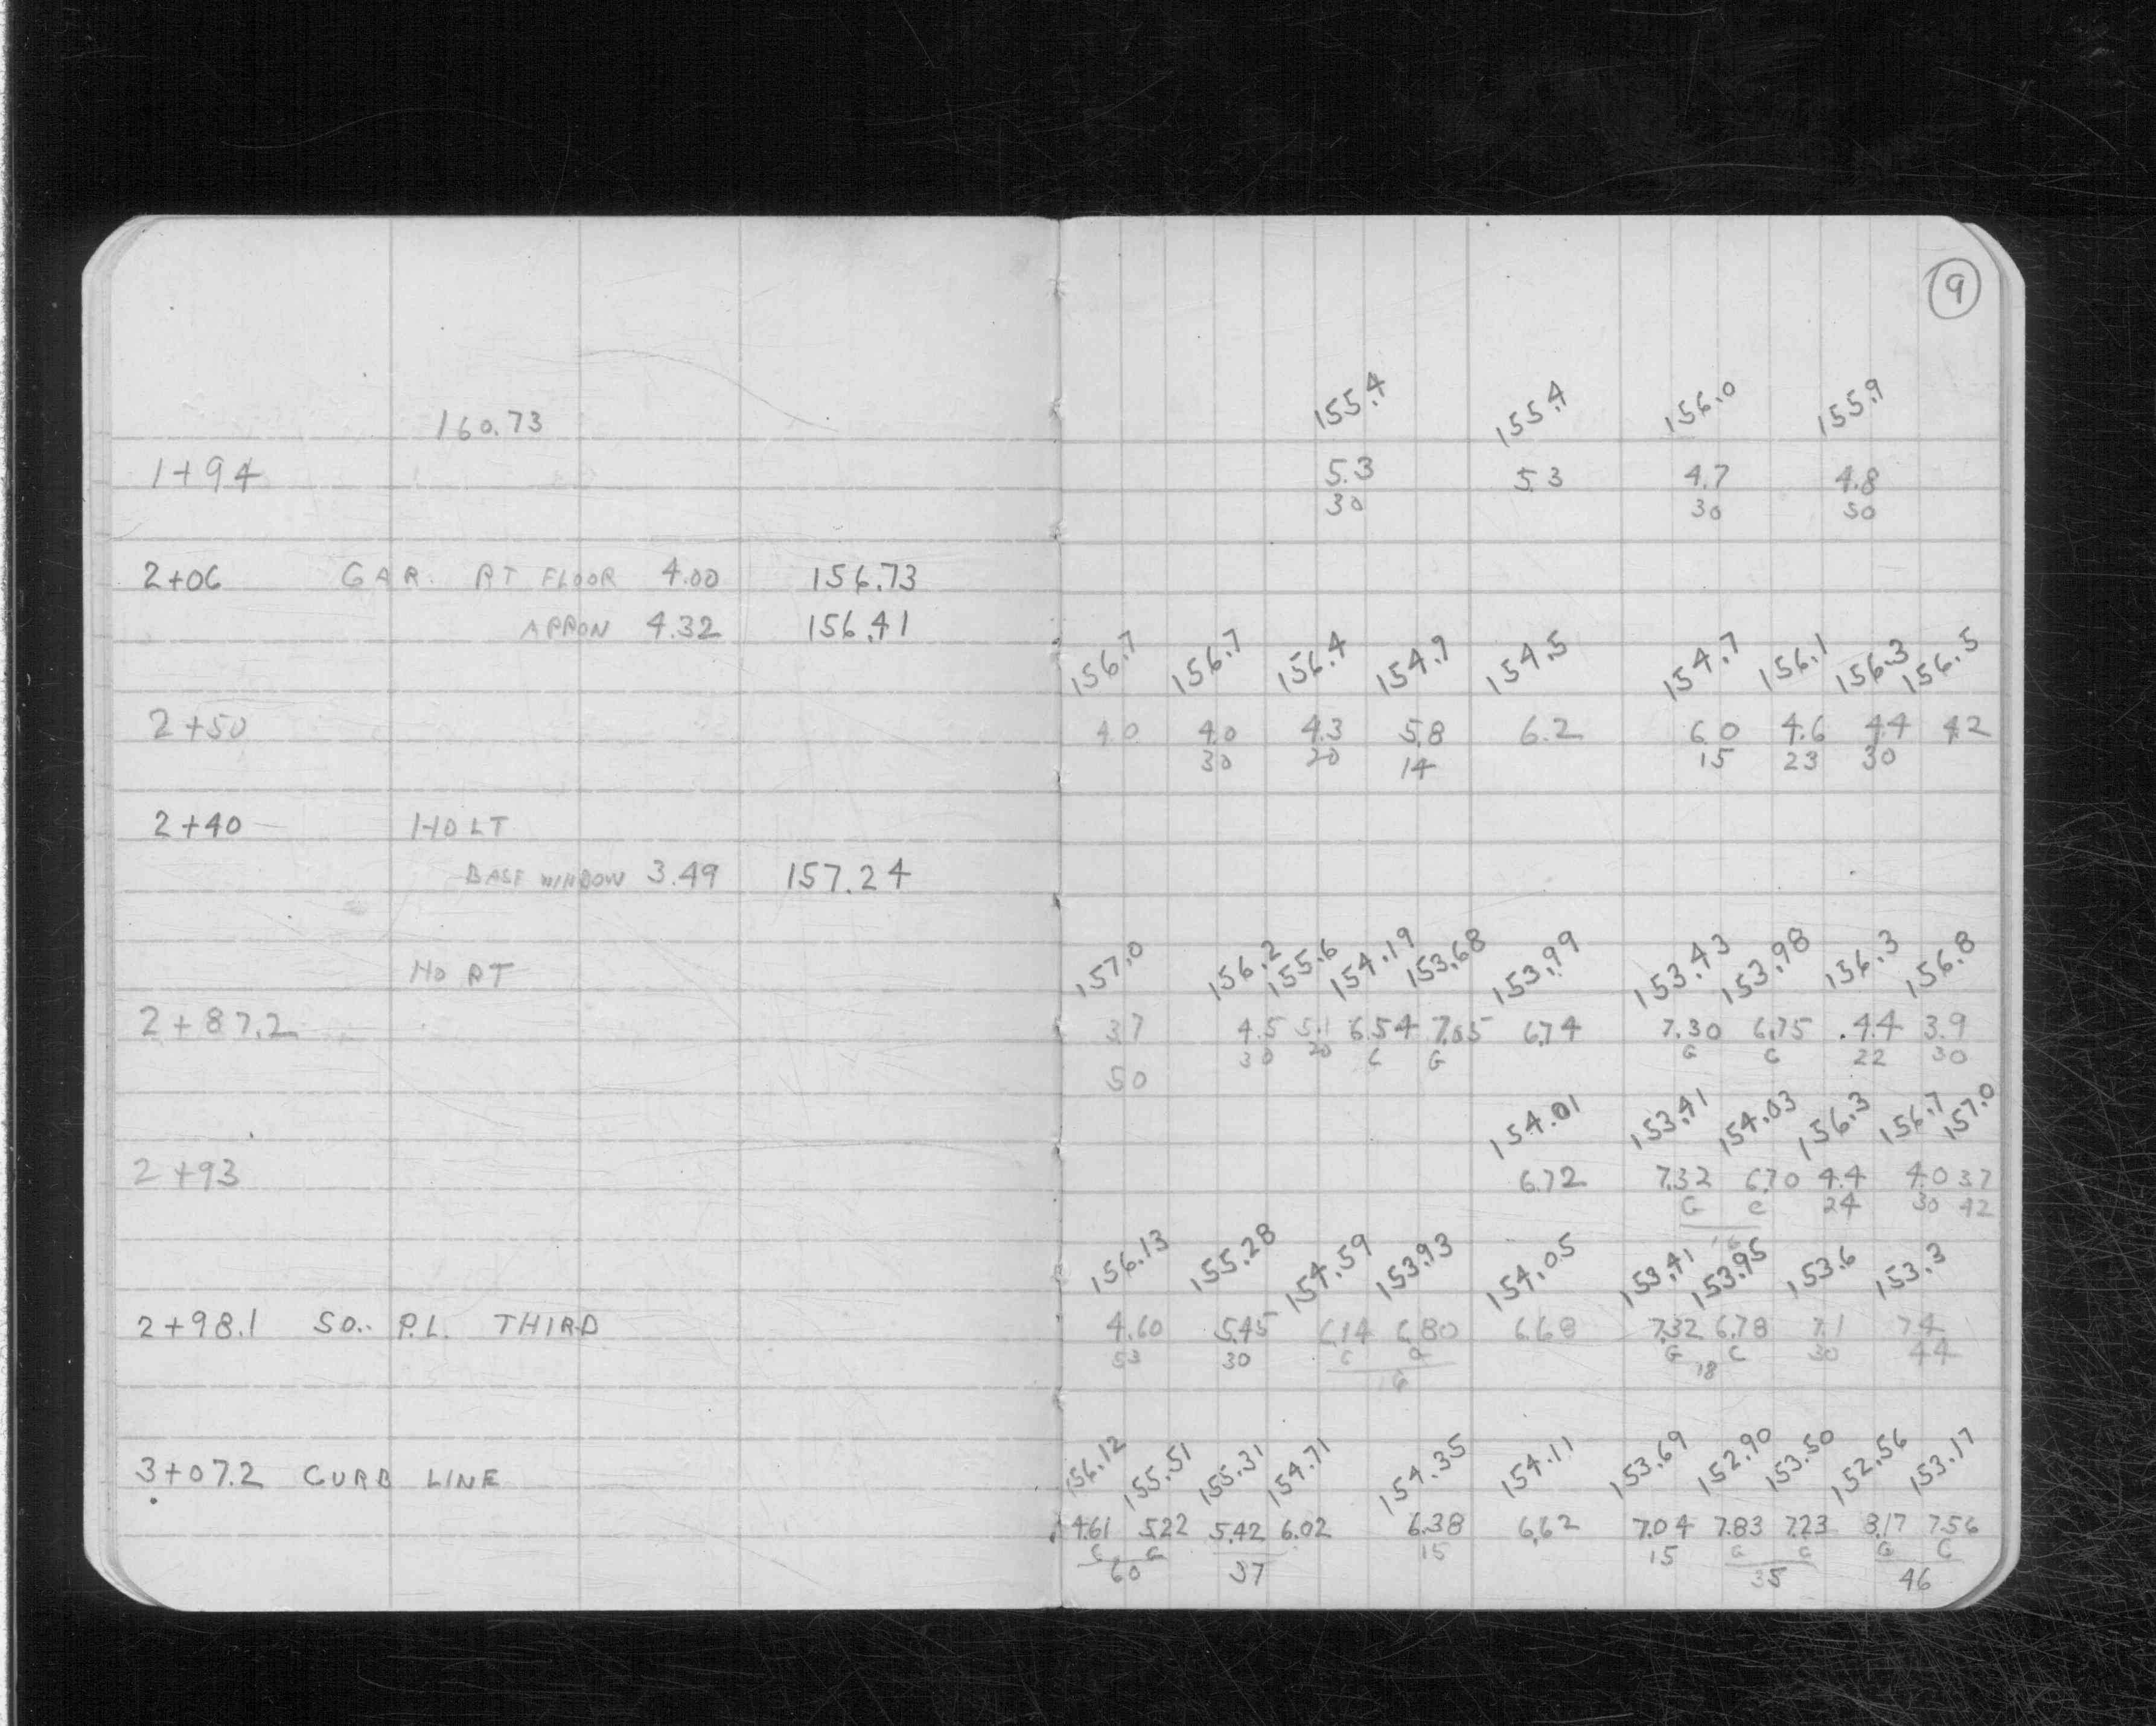 9
160.73 155.4 155.4 156.0 155.9
1+94 5.3 5.3 4.7 4.8
30 30 50
2+06 GAR. RT FLOOR 4.00 156.73
APRON 4.32 156.41
156.7 156.7 156.4 154.9 154.5 154.7 156.1 156.3 156.5
2+50 4.0 4.0 4.3 5.8 6.2 6.0 4.6 4.4 4.2
30 20 14 15 23 30
2+40 HO LT
BASE WINDOW 3.49 157.24
HO RT 157.0 156.2 155.6 154.19 153.68 153.99 153.43 153.98 156.3 156.8
2+87.2 3.7 4.5 5.1 6.54 7.05 6.74 7.30 6.75 4.4 3.9
50 30 20 C G G C 22 30
154.01 153.41 154.03 156.3 156.7 157.0
2+93 6.72 7.32 6.70 4.4 4.0 3.7
G C 24 30 42
156.13 155.28 154.59 153.93 154.05 153.41 153.95 153.6 153.3
2+98.1 SO. P.L. THIRD 4.60 5.45 6.14 6.80 6.68 7.32 6.78 7.1 7.4
53 30 C G G C 30 44
18
156.12 155.51 155.31 154.71 154.35 154.11 153.69 152.90 153.50 152.56 153.17
3+07.2 CURB LINE
4.61 5.22 5.42 6.02 6.38 6.62 7.04 7.83 7.23 8.17 7.56
C G 15 15 G C G C
60 37 35 46